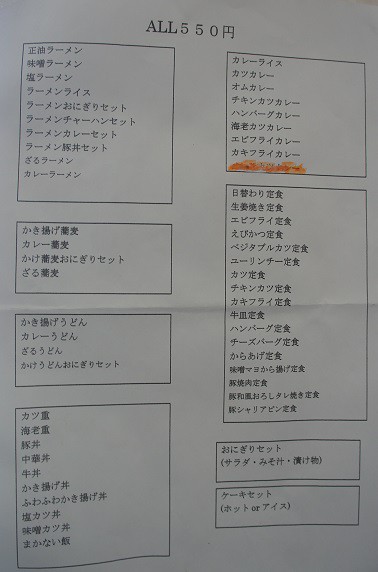 ALL５５０円
正油ラーメン
味噌ラーメン
塩ラーメン
ラーメンライス
ラーメンおにぎりセット
ラーメンチャーハンセット
ラーメンカレーセット
ラーメン豚丼セット
ざるラーメン
カレーラーメン
かき揚げ蕎麦
カレー蕎麦
かけ蕎麦おにぎりセット
ざる蕎麦
かき揚げうどん
カレーうどん
ざるうどん
かけうどんおにぎりセット
カツ重
海老重
豚丼
中華丼
牛丼
かき揚げ丼
ふわふわかき揚げ丼
塩カツ丼
味噌カツ丼
まかない飯
カレーライス
カツカレー
オムカレー
チキンカツカレー
ハンバーグカレー
海老カツカレー
エビフライカレー
カキフライカレー
日替わり定食
生姜焼き定食
エビフライ定食
えびかつ定食
ベジタブルカツ定食
ユーリンチー定食
カツ定食
チキンカツ定食
カキフライ定食
牛皿定食
ハンバーグ定食
チーズバーグ定食
からあげ定食
味噌マヨから揚げ定食
豚焼肉定食
豚和風おろしタレ焼き定食
豚シャリアピン定食
おにぎりセット
(サラダ・みそ汁・漬け物)
ケーキセット
(ホット or アイス)